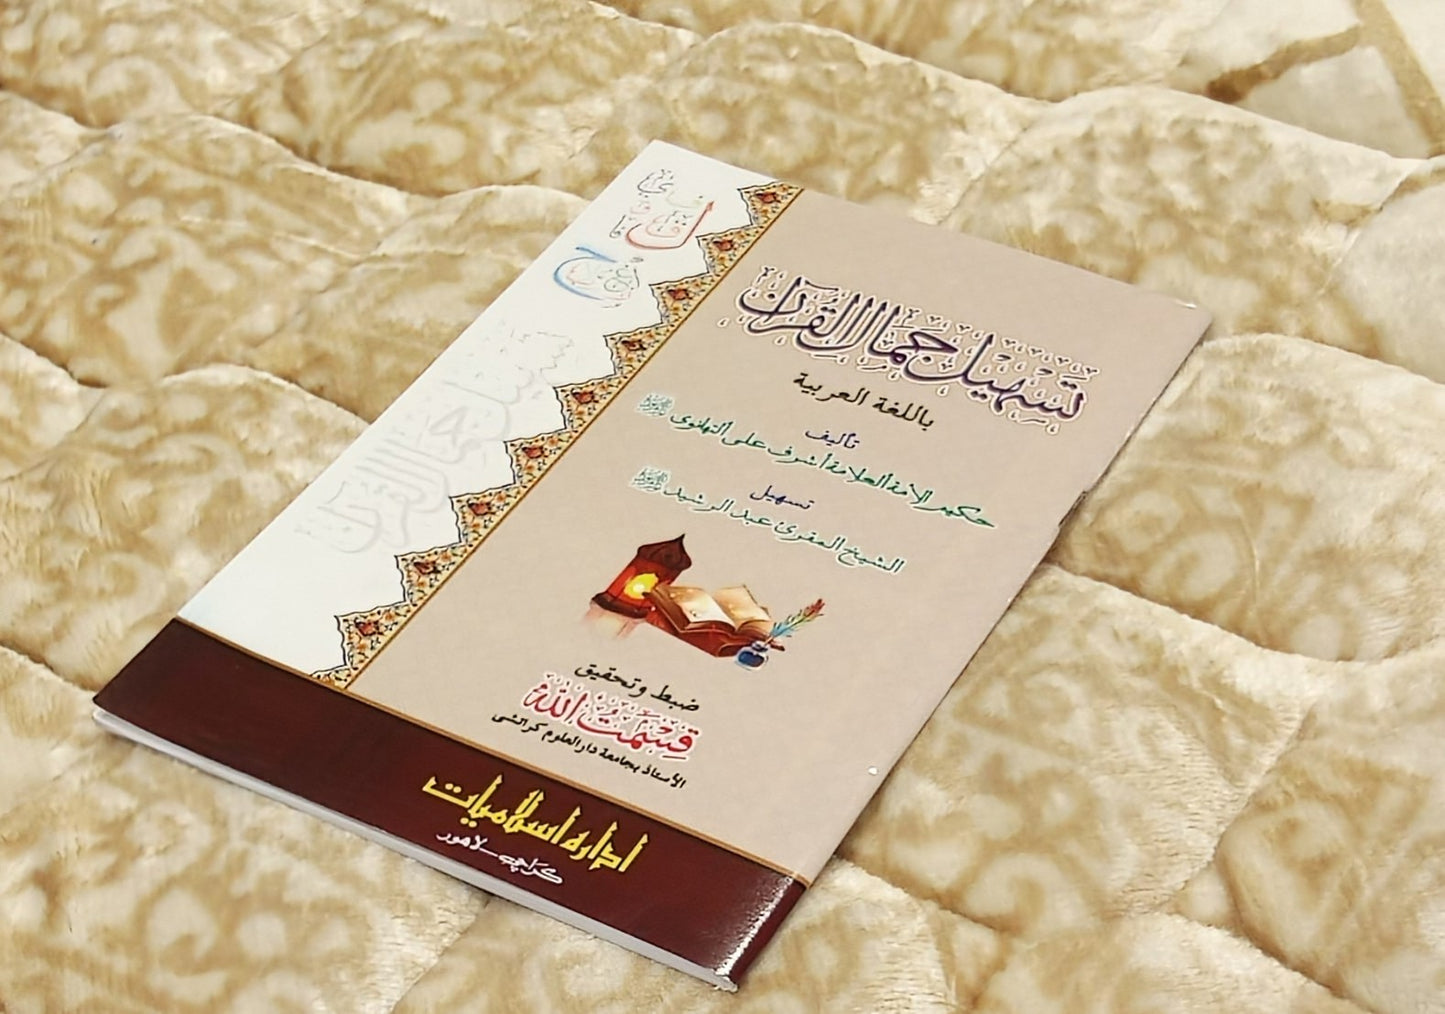 تَسْهِيل جَمَالِ القُرآن
باللغة العربية
تأليف
حكيم الأمة العلامة أشرف على التهانوى
تسهيل
الشيخ المقرئ عبد الرشيد
ضبط وتحقيق
قِسْمَتُ الله
الأستاذ بجامعة دار العلوم كراتشى
ادارہ اسلامیات
کراچی - لاہور